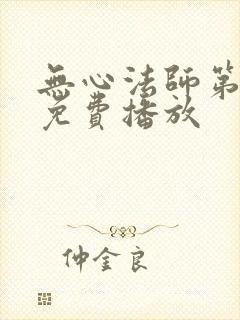 無心法師第
免費播放
仲金良